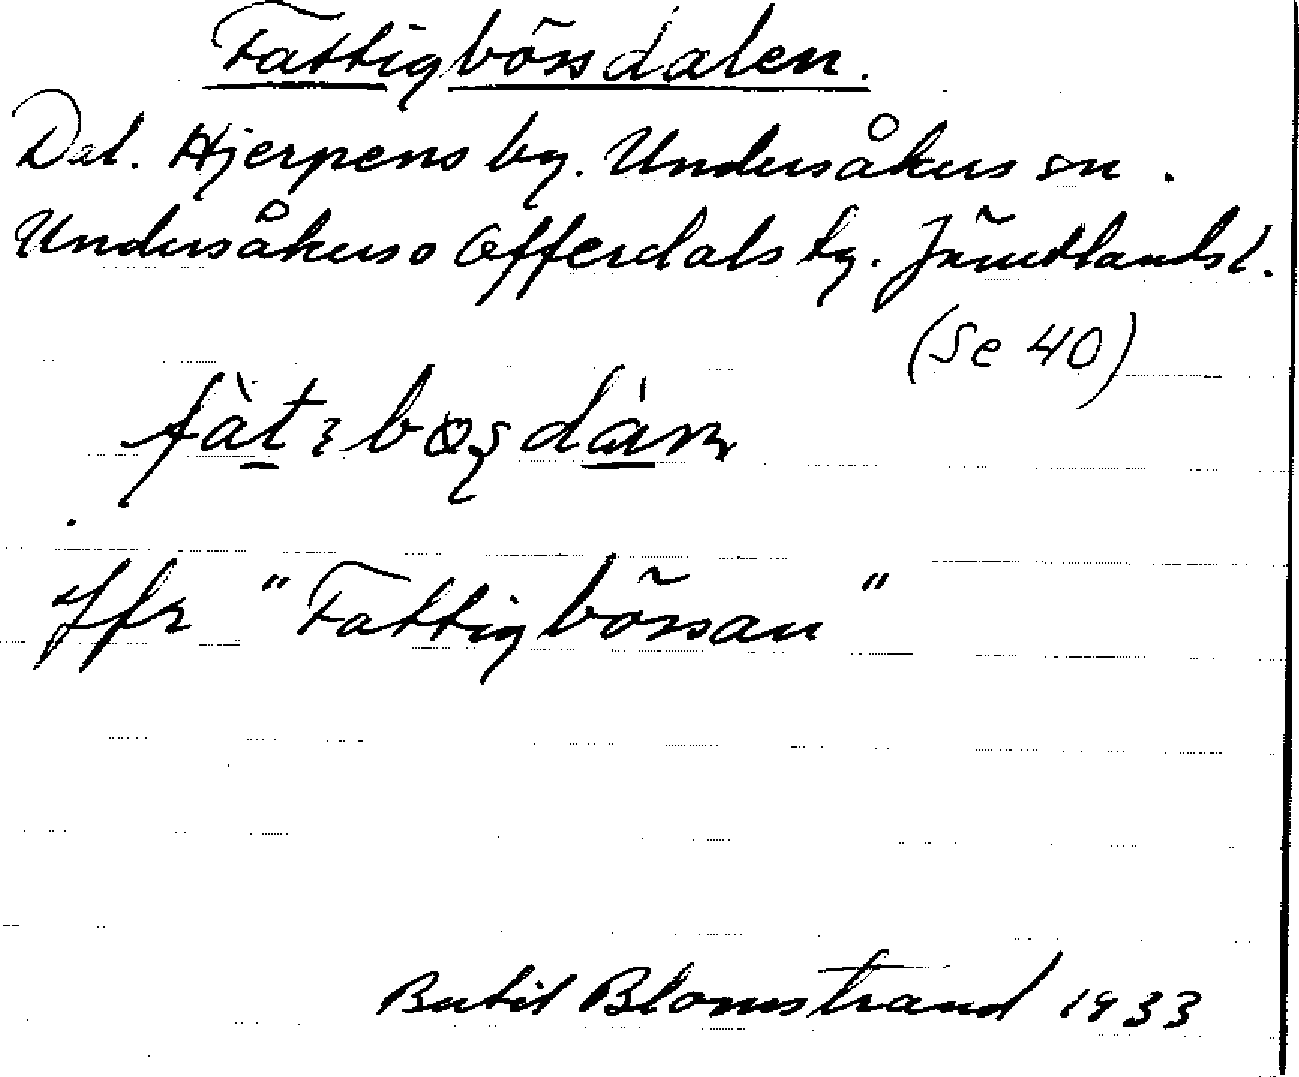 Fattigbössdalen.
Dal. Hjerpens by. Undersåkers sn.
Undersåkers o Offerdals tg. Jämtlands l.
(Se 40)
Jfr "Fattigbössan"
Bertil Blomstrand 1933